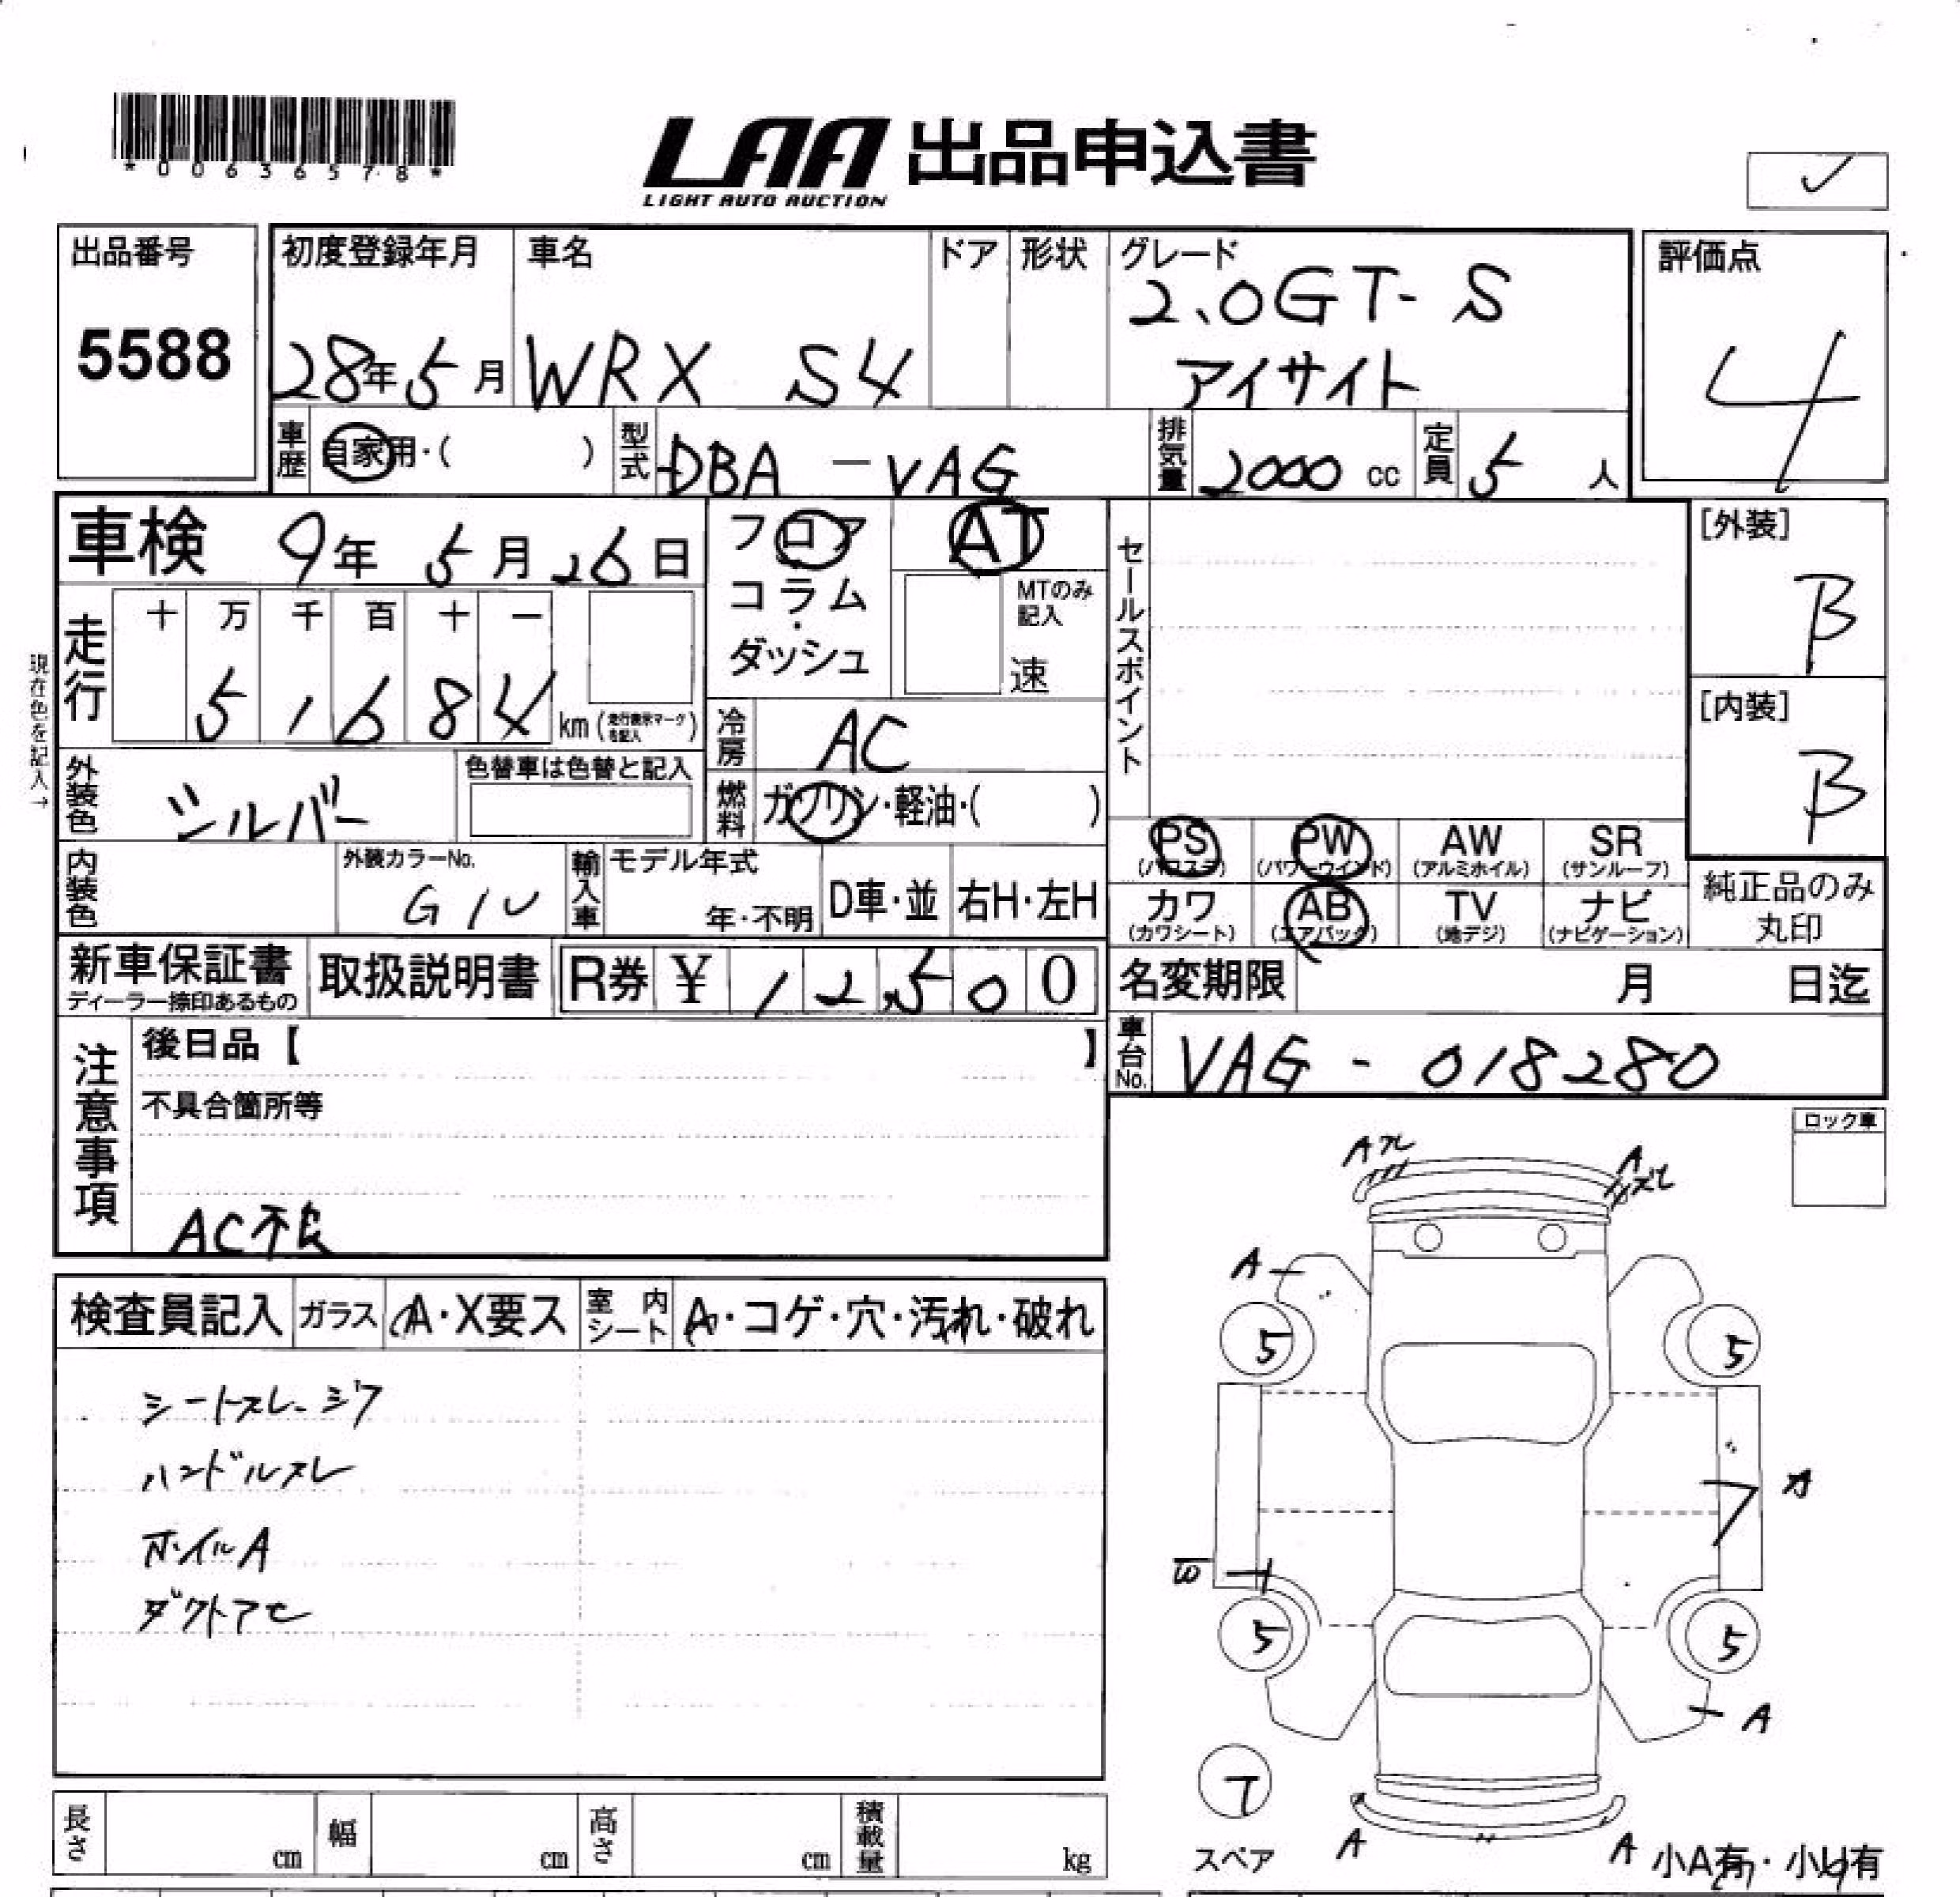 *00636578*
LAA 出品申込書
LIGHT AUTO AUCTION
出品番号
5588
初度登録年月
28年5月
車名
WRX S4
ドア
形状
グレード
2.0GT-S
アイサイト
評価点
4
車歴
自家用・( )
型式
DBA-VAG
排気量
2000 cc
定員
5 人
車検 9年 5月 26日
フロア
コラム・
ダッシュ
AT
MTのみ
記入
速
セールスポイント
[外装]
B
[内装]
B
現在色を記入→
走行
十 万 千 百 十 一
5 1 6 8 4 km (走行表示マークを記入)
冷房
AC
外装色
シルバー
色替車は色替と記入
燃料
ガソリン・軽油・( )
内装色
外装カラーNo.
G1U
輸入車
モデル年式
年・不明
D車・並
右H・左H
PS
(パワステ)
PW
(パワーウインド)
AW
(アルミホイル)
SR
(サンルーフ)
カワ
(カワシート)
AB
(エアバック)
TV
(地デジ)
ナビ
(ナビゲーション)
純正品のみ
丸印
新車保証書
ディーラー捺印あるもの
取扱説明書
R券 ¥ 12,500
名変期限 月 日迄
車台No.
VAG - 018280
注意事項
後日品【 】
不具合箇所等
AC不良
ロック車
検査員記入
ガラス
A・X要ス
室内シート
A・コゲ・穴・汚れ・破れ
シートスレ、シワ
ハンドルスレ
ホイルA
ダクトアセ
Aスレ
Aスレ
A
5
5
A
5
5
A
T
スペア
A
A
小A有・小U有
長さ
cm
幅
cm
高さ
cm
積載量
kg